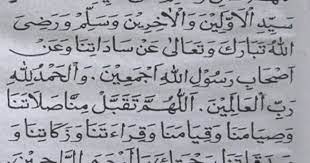 سَيِّدِ الْاَوَّلِيْنَ وَالْاٰخِرِيْنَ وَسَلَّمَ وَرَضِيَ
اللهُ تَبَارَكَ وَتَعَالٰى عَنْ سَادَاتِنَا وَعَنْ
اَصْحَابِ رَسُوْلِ اللهِ اَجْمَعِيْنَ. وَالْحَمْدُ لِلّٰهِ
رَبِّ الْعَالَمِيْنَ. اَللّٰهُمَّ تَقَبَّلْ مِنَّا صَلَاتَنَا
وَصِيَامَنَا وَقِيَامَنَا وَقِرَاءَتَنَا وَزَكَاتَنَا وَ